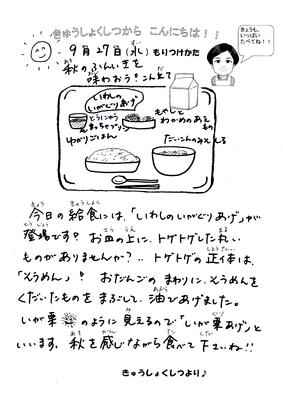 きゅうしょくしつから こんにちは!!
きょうも、
いっぱい
たべてね!!
9月27日(水) もりつけかた
秋のふんいきを
味わおう!こんだて
いわしの
いがぐりあげ
とうにゅう
もやしと
わかめのあえ
もの
わかりごはん
だいこんのみそしる
今日の給食には、「いわしのいがぐりあげ」が
登場です? お皿の上に、トゲトゲした丸い
ものがありませんか?.. トゲトゲの正体は、
「そうめん」? おだんごの まわりに、そうめんを
くだいたものを まぶして、油であげました。
いが栗 のように 見えるので「いが栗あげ」と
いいます。秋を感じながら食べて 下さいね!!
きゅうしょくしつより♪